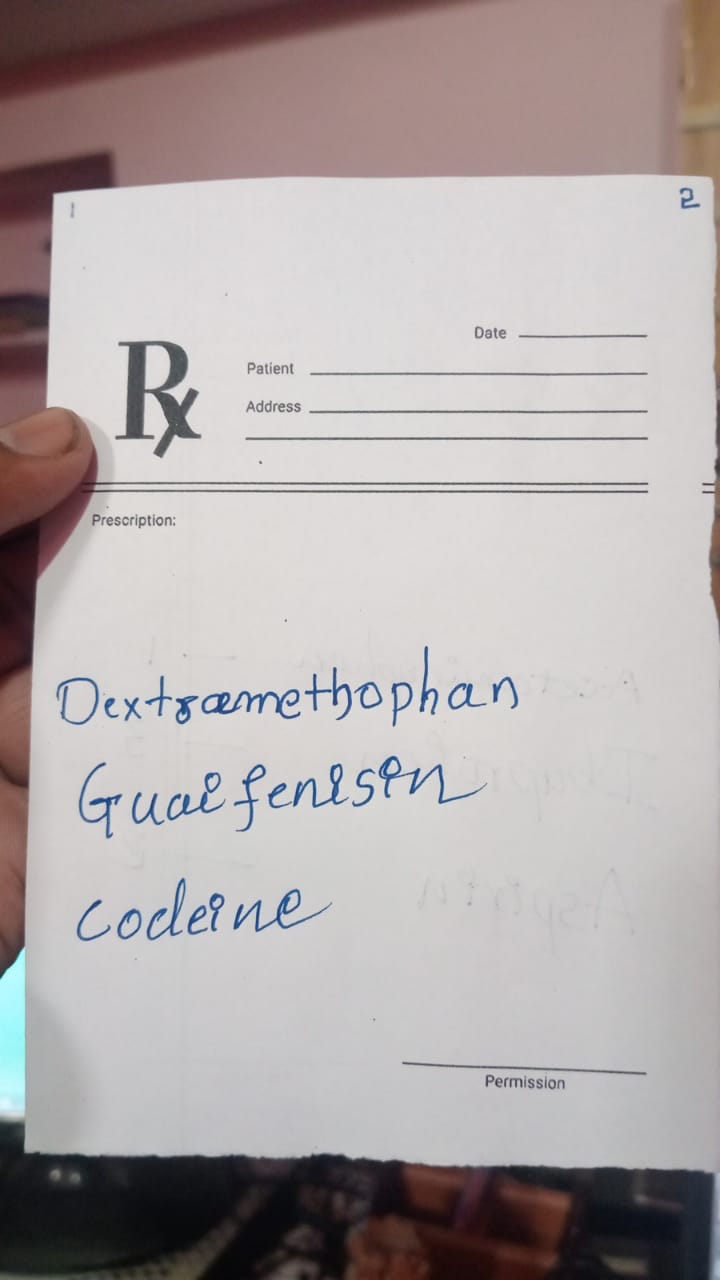 1 2
Date
Rx
Patient
Address
Prescription:
Dextramethophan
Guaifenisin
Codeine
Permission